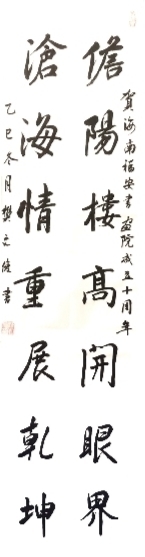 賀海南福安書画院成立十周年
儋陽樓高開眼界
滄海情重展乾坤
乙巳冬月樊文俊書